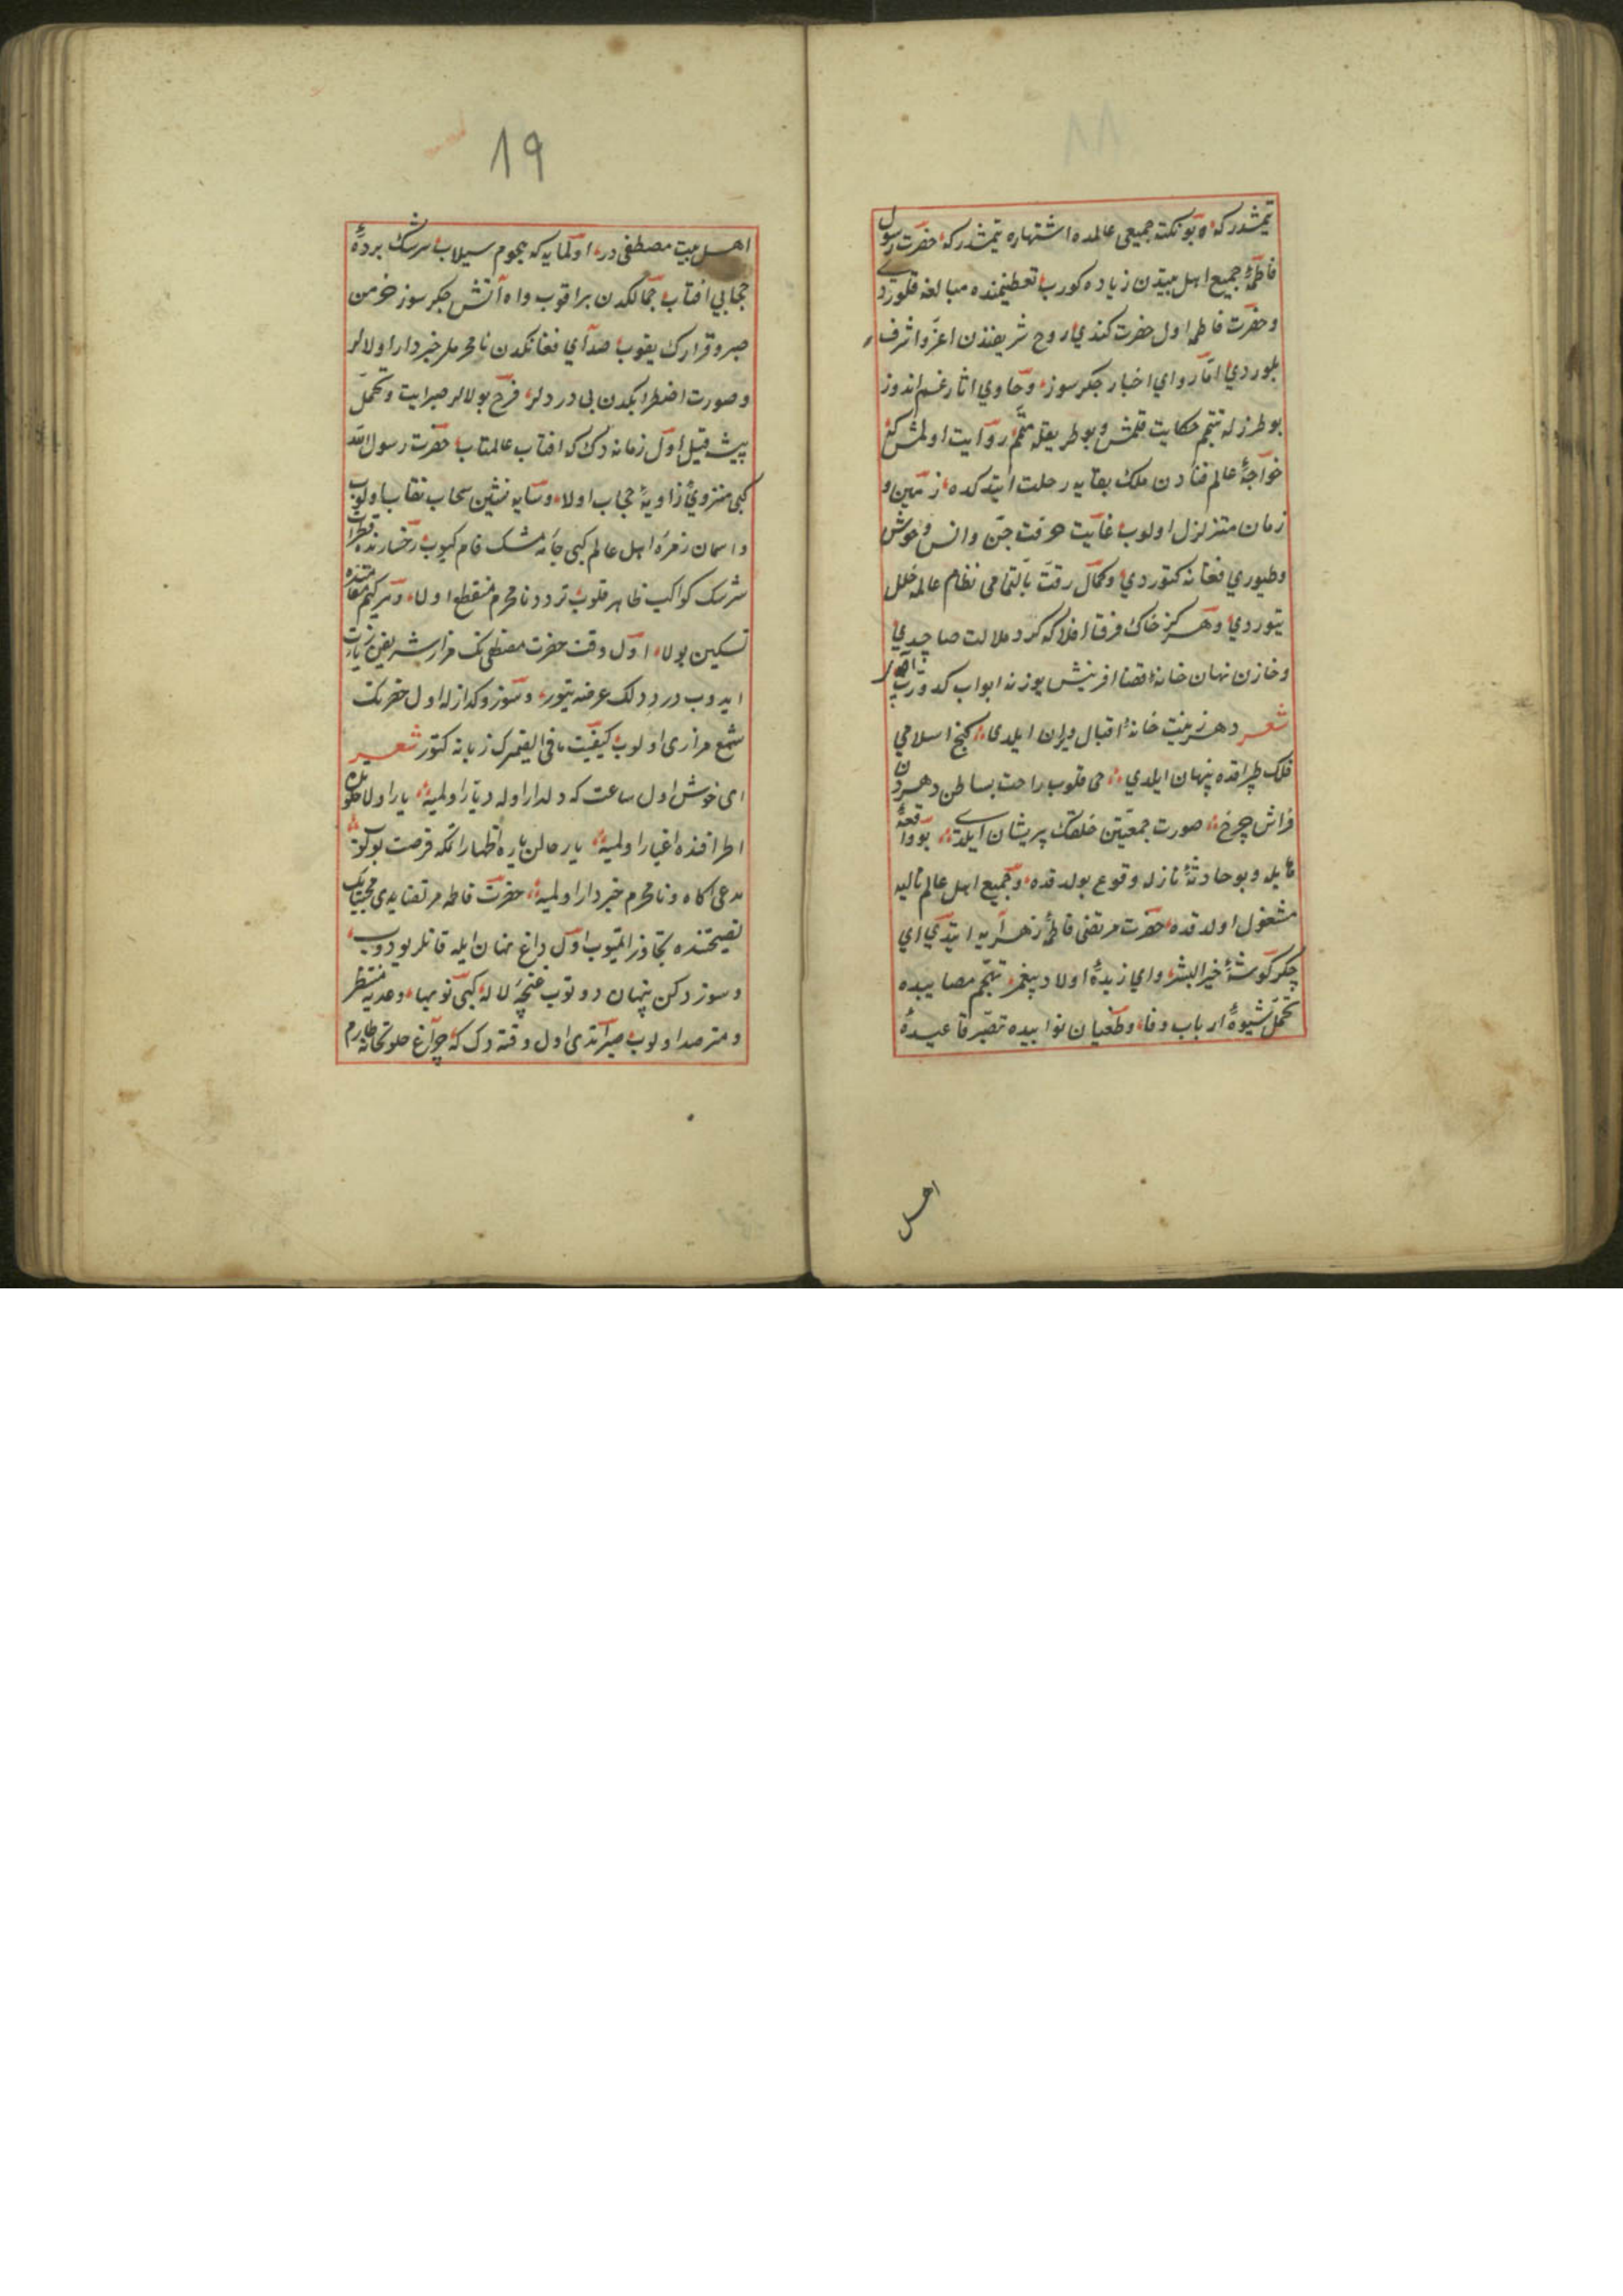 یتمشدر که و بو نکته جمیعی عالمده اشتهاره یتمشدر که حضرت رسول
فاطمهٔ جمیع اهل بیتدن زیاده کورب تعظیمنده مبالغه قلوردی
و حضرت فاطمه اول حضرت کندی روح شریفندن اعز و اشرف
بلوردی اما راوی اخبار جکرسوز و حاوی اثار غم اندوز
بو طرزله حکایت قلمش و بو طریقله روایت اولمش که
خواجهٔ عالم فنادن ملک بقایه رحلت ایتدکده زمین و
زمان متزلزل اولوب غایت حرقت جن و انس و وحوش
و طیوری فغانه کتوردی و کمال رقت بالتمامی نظام عالمه خلل
یتوردی و هر کز خاک فرق افلاکه کرد ملالت صاچدی
و خازن نهان خانهٔ قضا افرینش یوزنه ابواب کدورت آچدی
شعر دهر زینت خانهٔ اقبال ویران ایلدی کنج اسلامی
فلک طپراقده پنهان ایلدی طی قلوب راحت بساطن دهردن
فراش چرخ صورت جمعیتن خلقک پریشان ایلدی بو واقعهٔ
هایله و بو حادثهٔ نازله وقوع بولدقده و جمیع اهل عالم نالیه
مشغول اولدقده حضرت مرتضی فاطمهٔ زهرایه ایتدی ای
جکرکوشهٔ خیر البشر و ای زبدهٔ اولاد پیغمبر تهجم مصایبده
تحمل شیوهٔ ارباب وفا و طغیان نوایبده تصبر قاعیدهٔ
اهل
۱۹
اهل بیت مصطفی در اولمایه که هجوم سیلاب سرشک پردهٔ
حجابی افتاب جمالکدن براقوب و اه آتش جکرسوز خرمن
صبر و قرارک یقوب صدای فغانکدن نامحرملر خبردار اولالر
و صورت اضطرابکدن بی دردلر فرح بولالر صبر ایت و تحمل
پیشه قیل اول زمانه دک که افتاب عالمتاب حضرت رسول الله
کبی منزوی زاویهٔ حجاب اولا و سایه نشین سحاب نقاب اولوب
و اسمان زمرهٔ اهل عالم کبی جامهٔ مشک فام کیوب رخسارنده قطرات
سرشک کواکب ظاهر قلوب تردد نامحرم منقطع اولا و
تسکین بولا اول وقت حضرت مصطفی نک مزار شریفین زیارت
ایدوب درد دلک عرضه یتور و سوز و کدازله اول حضرتک
شمع مزاری اولوب کیفیت ما فی الضمیرک زبانه کتور شعر
ای خوش اول ساعت که دلدار اوله دیار اولمیه یار اولا
اطرافنده اغیار اولمیه یار حالن یاره اظهار اتمکه فرصت بولوب
مدعی اکاه و نامحرم خبردار اولمیه حضرت فاطمه مرتضایدی
نصیحتنده تجاوز اتمیوب اول داغ نهان ایله قانلر یودوب
و سوز دلن پنهان دوتوب غنچهٔ لاله کبی و منتظر
و مترصد اولوب صبر اتدی اول وقته دک که چراغ خلوتخانهٔ طارم